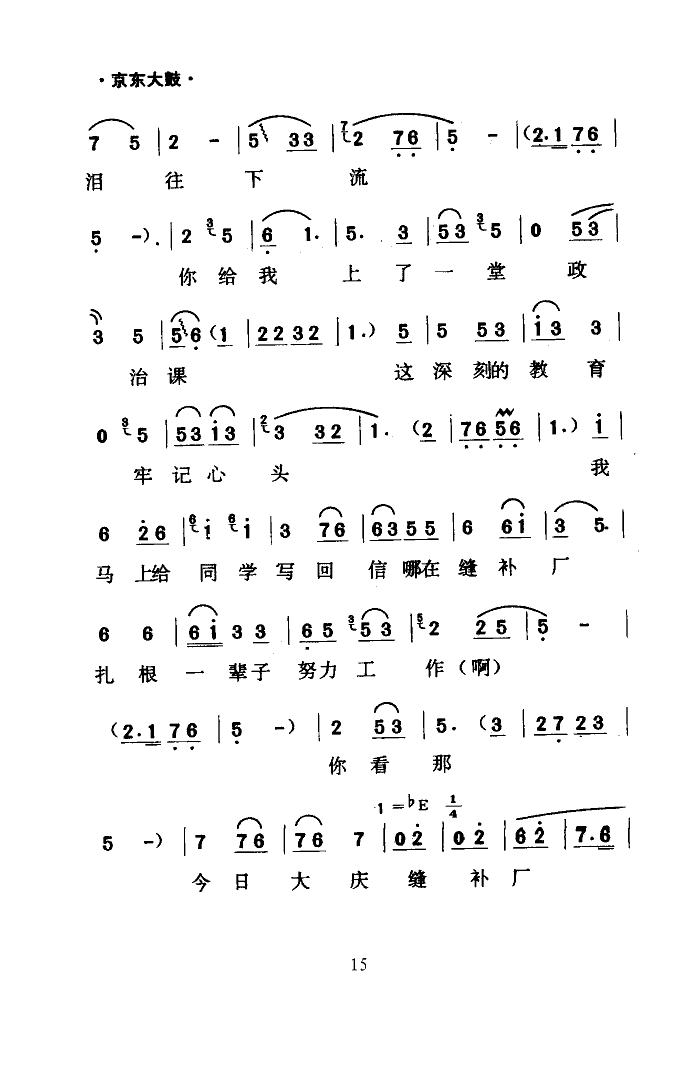 ·京东大鼓·
7 5 | 2 - | 5 33 | 7 2 76 | 5 - | (2.1 76 |
泪 往 下 流
5 -). | 2 3 5 | 6 1. | 5. 3 | 53 3 5 | 0 53 |
你 给 我 上 了 一 堂 政
3 5 | 56 (1 | 2232 | 1.) 5 | 5 53 | i3 3 |
治 课 这 深 刻的 教 育
0 3 5 | 53 i3 | 2 3 32 | 1. (2 | 76 56 | 1.) i |
牢 记 心 头 我
6 26 | 6 i 6 i | 3 76 | 6355 | 6 6i | 3 5. |
马 上给 同 学 写 回 信 哪在 缝 补 厂
6 6 | 6i 3 3 | 65 3 53 | 5 2 25 | 5 - |
扎 根 一 辈子 努力 工 作（啊）
(2.1 76 | 5 -) | 2 53 | 5. (3 | 27 23 |
你 看 那
1=♭E 1/4
5 -) | 7 76 | 76 7 | 02 | 02 | 62 | 7.6 |
今 日 大 庆 缝 补 厂
15